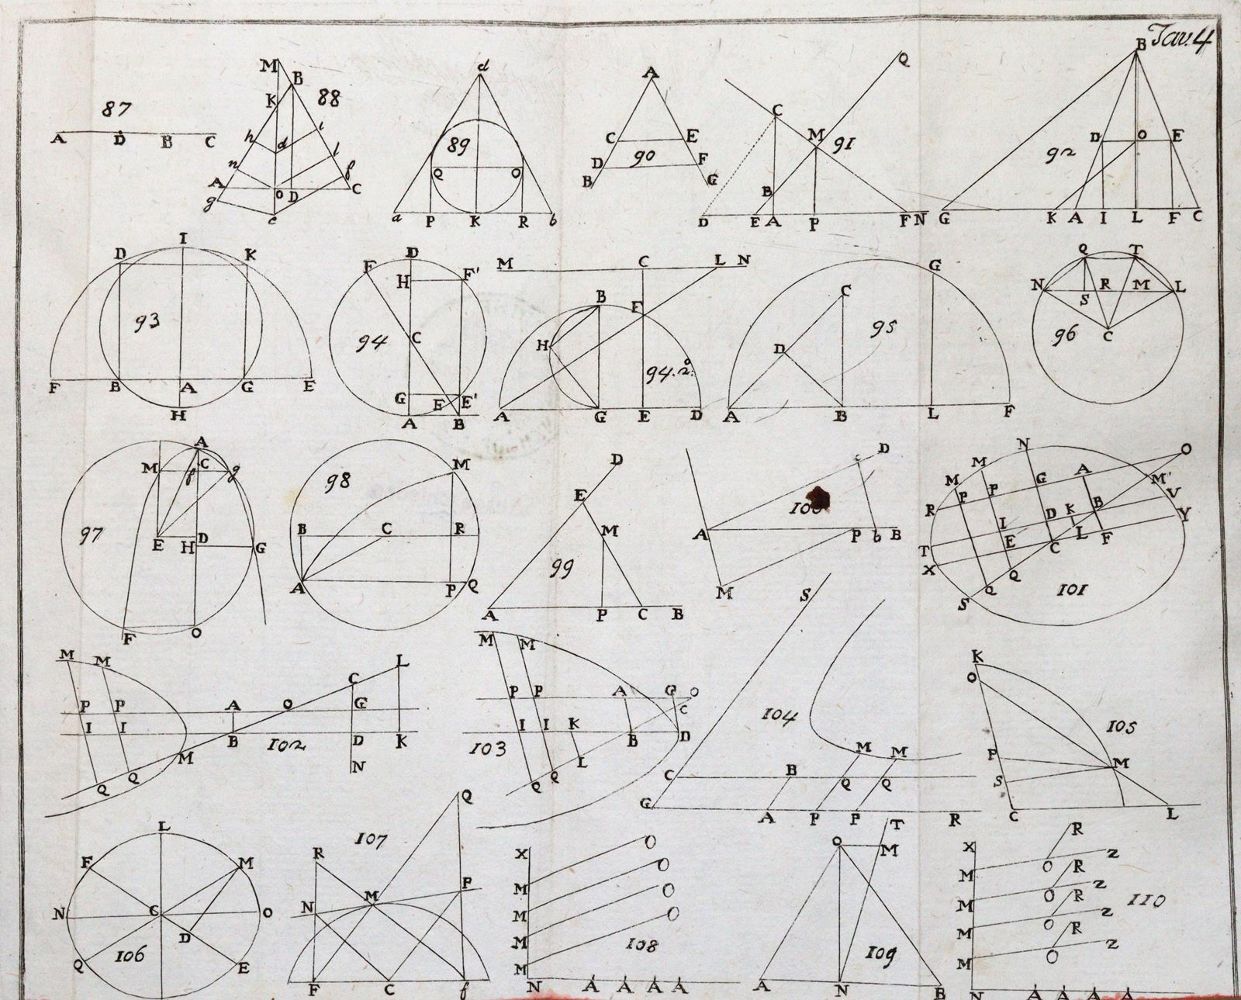 Tav. 4
87
A D B C
88
M
B
K
h d i
n l
f
A O D C
g
e
89
d
Q O
a P K R b
90
A
C E
D F
B G
91
Q
C
M
B
D E A P F N
92
B
D O E
G K A I L F C
93
I
D K
F B A G E
H
94
D
F
H F'
C
G E E'
A B
94.2º
M C L N
B F
H
A G E D
95
G
C
D
A B L F
96
Q T
N S R M L
C
97
A
M C
f g
E D
H G
F O
98
M
B C R
A P Q
99
D
E
M
A P C B
100
c D
A P b B
M
101
N O
M M G A M'
P P V
R I D K B Y
T E C L F
X Q Q
S
102
M M L
C
P P A O G
I I B D K
M
Q Q N
103
M M
P P A G O
C
I I K B D
L
Q Q
104
S
M M
C B Q Q
G A P P R
105
K
O
P M
S
C L
106
L
F M
N C O
D
Q E
107
Q
R
M P
N
F C f
108
X O
M O
M O
M O
M
N A A A A
109
T
O M
A N B
110
X R
Z
M O R
Z
M O R
Z
M O R
Z
M O
N A A A A